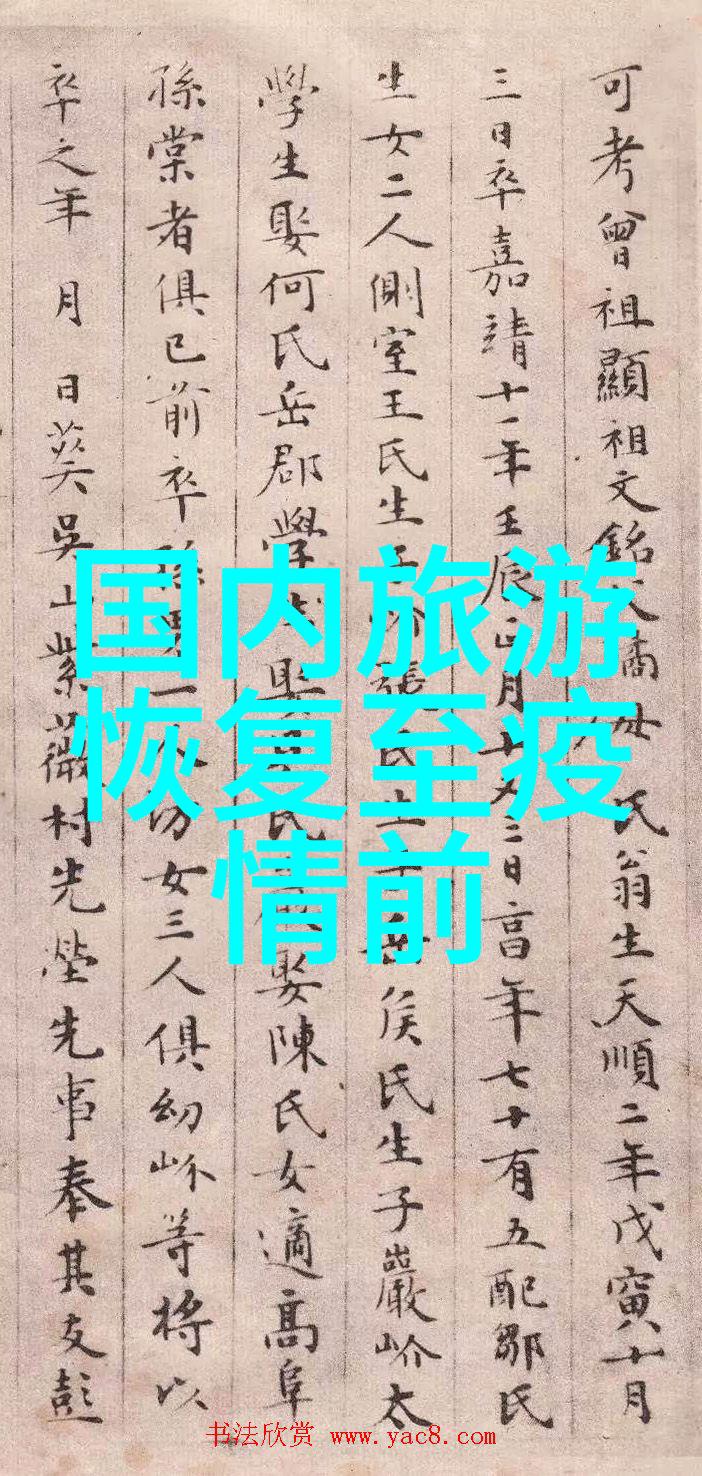 可考曾祖顯祖文銘人母氏翁生天順二年戊寅十月
三日卒嘉靖十一年壬辰正月十又三日高年七十有五配鄒氏
生女二人側室王氏生子岳侯氏生子巖岕太
學生娶何氏岳郡學娶陳氏女適高阜
孫棠者俱已前卒孫男一人幼女三人俱幼岕等將以
卒之年 月 日葬吳山紫薇村先塋先事奉其友彭
国内旅游
恢复至疫
情前
书法欣赏 www.yac8.com